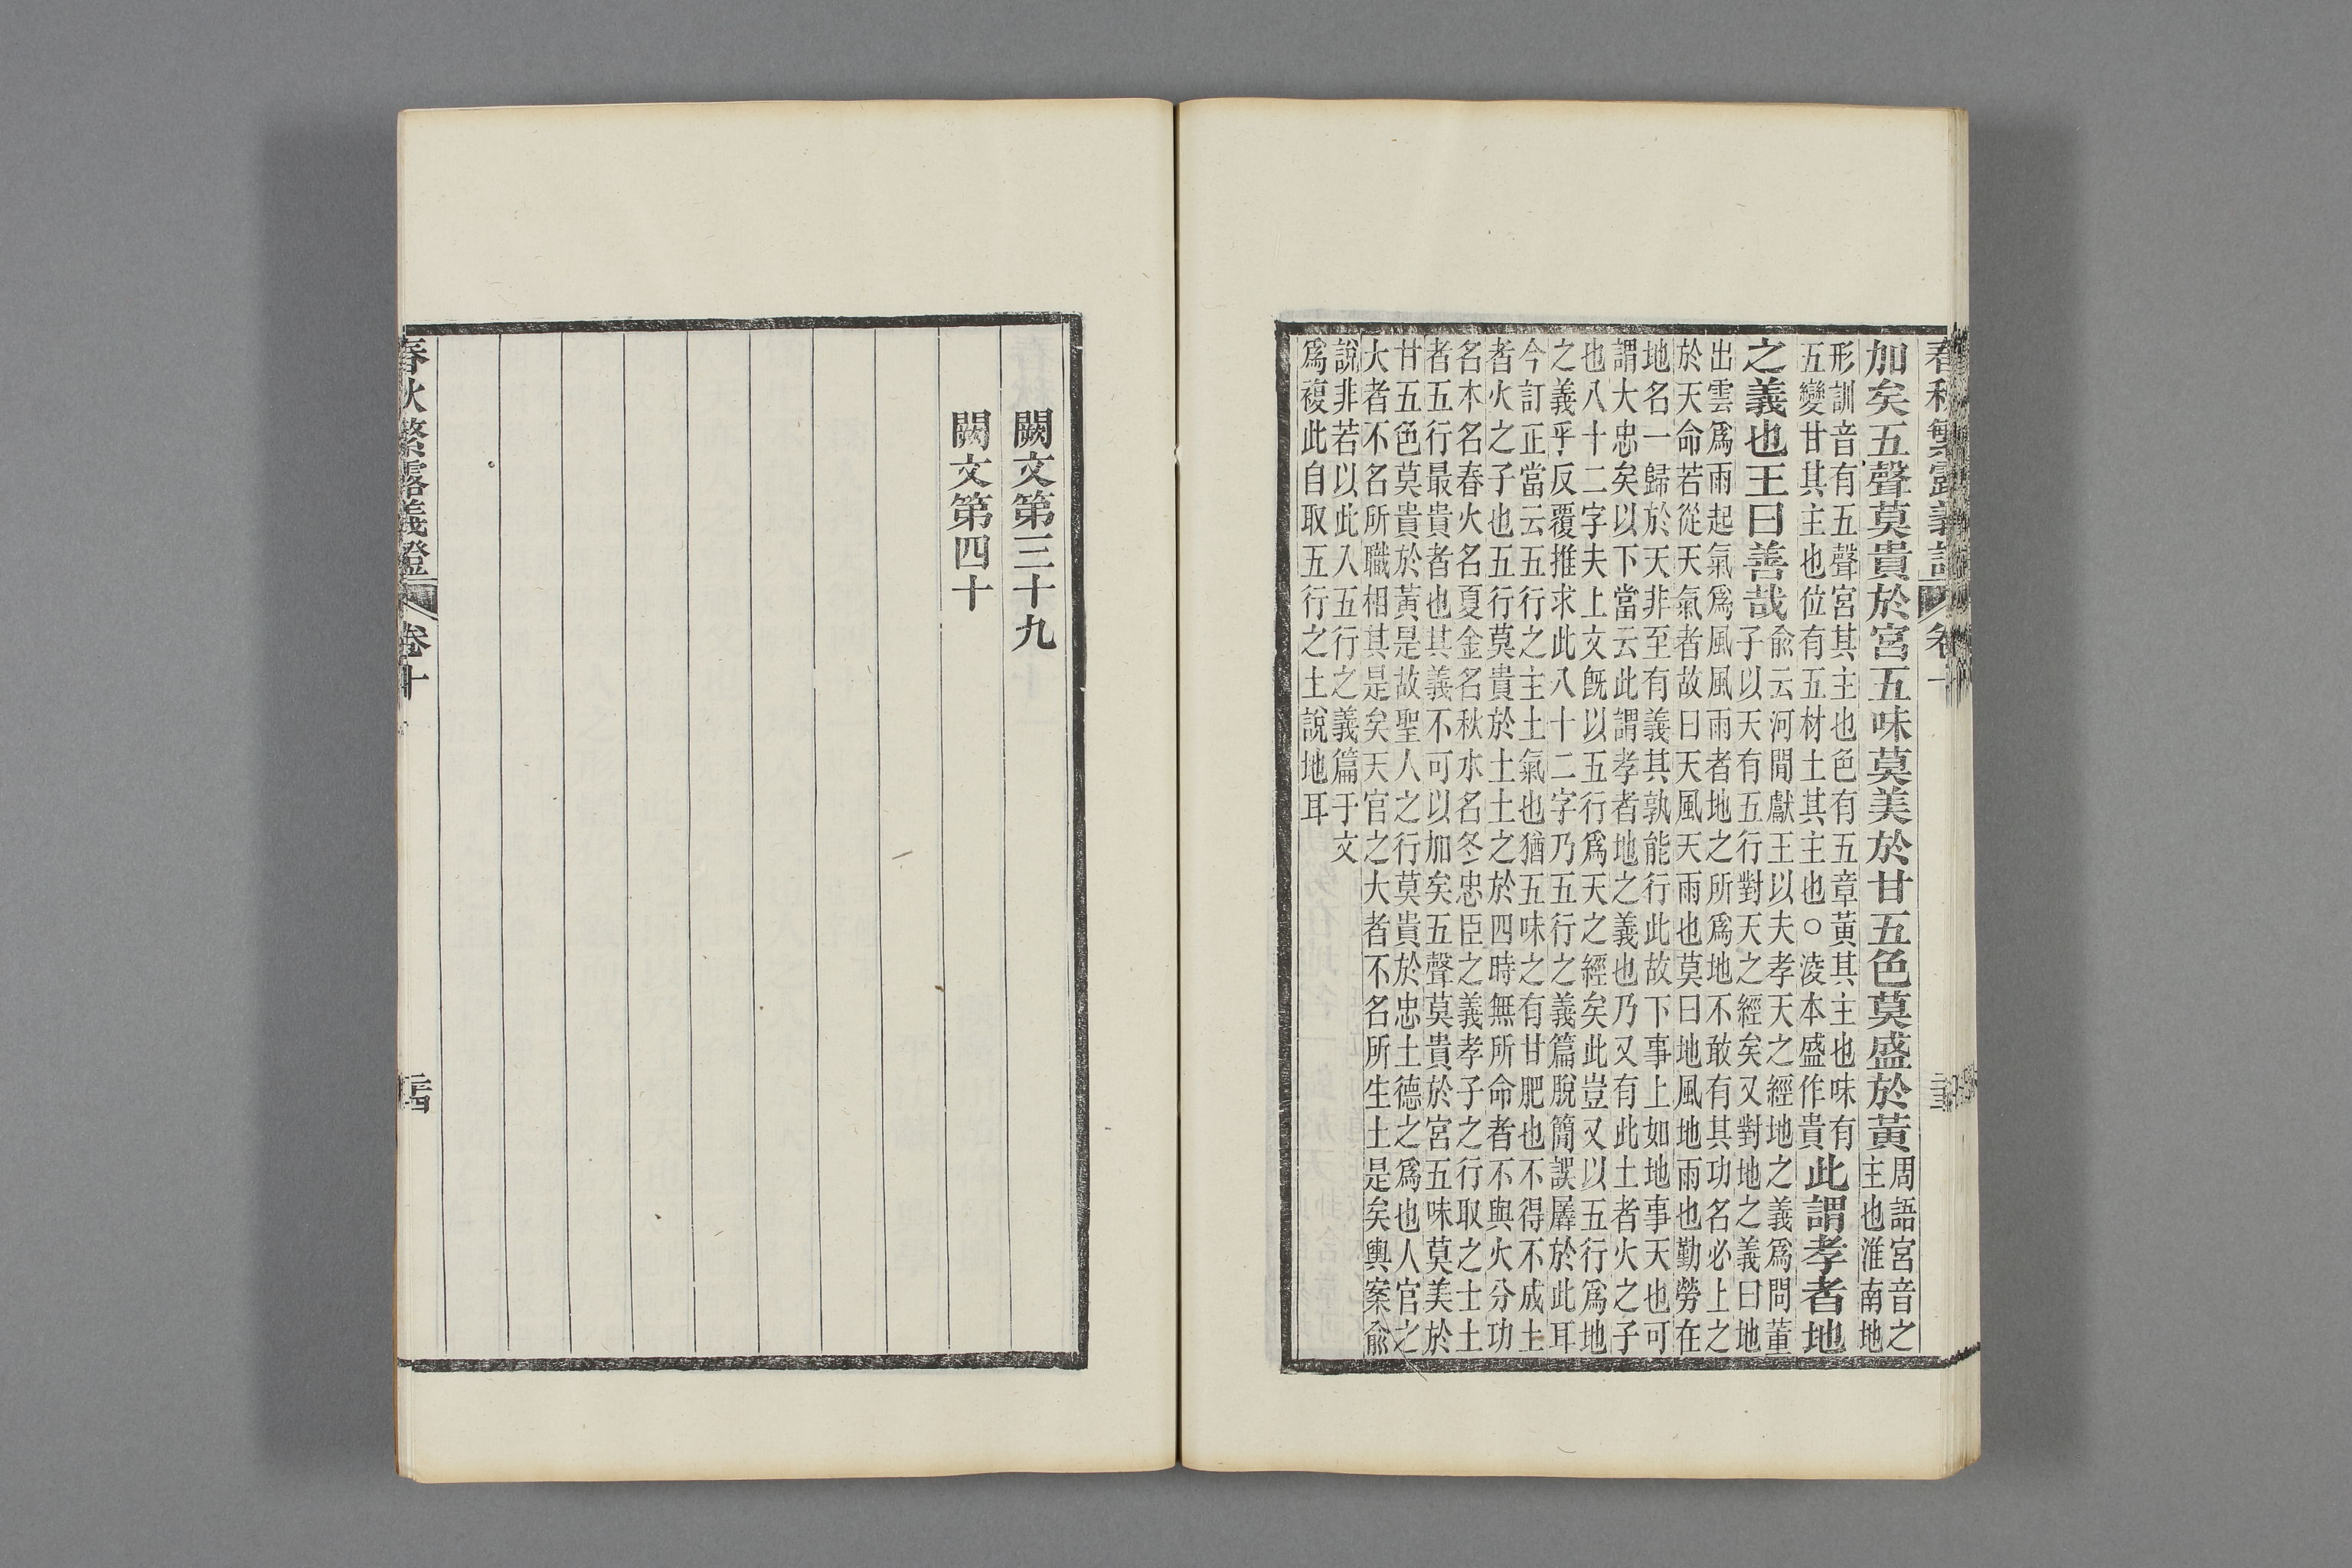 春秋繁露義證 卷十
加矣五聲莫貴於宮五味莫美於甘五色莫盛於黃周語宮音之
主也淮南地
形訓音有五聲宮其主也色有五章黃其主也味有
五變甘其主也位有五材土其主也○淩本盛作貴此謂孝者地
之義也王曰善哉俞云河閒獻王以夫孝天之經地之義爲問董
子以天有五行對天之經矣又對地之義曰地
出雲爲雨起氣爲風風雨者地之所爲地不敢有其功名必上之
於天命若從天氣者故曰天風天雨也莫曰地風地雨也勤勞在
地名一歸於天非至有義其孰能行此故下事上如地事天也可
謂大忠矣以下當云此謂孝者地之義也乃又有此土者火之子
也八十二字夫上文旣以五行爲天之經矣此豈又以五行爲地
之義乎反覆推求此八十二字乃五行之義篇脫簡誤羼於此耳
今訂正當云五行之主土氣也猶五味之有甘肥也不得不成土
者火之子也五行莫貴於土土之於四時無所命者不與火分功
名木名春火名夏金名秋水名冬忠臣之義孝子之行取之士土
者五行最貴者也其義不可以加矣五聲莫貴於宮五味莫美於
甘五色莫貴於黃是故聖人之行莫貴於忠土德之爲也人官之
大者不名所職相其是矣天官之大者不名所生土是矣輿案俞
說非若以此入五行之義篇于文
爲複此自取五行之土說地耳
闕文第三十九
闕文第四十
春秋繁露義證 卷十 二十四